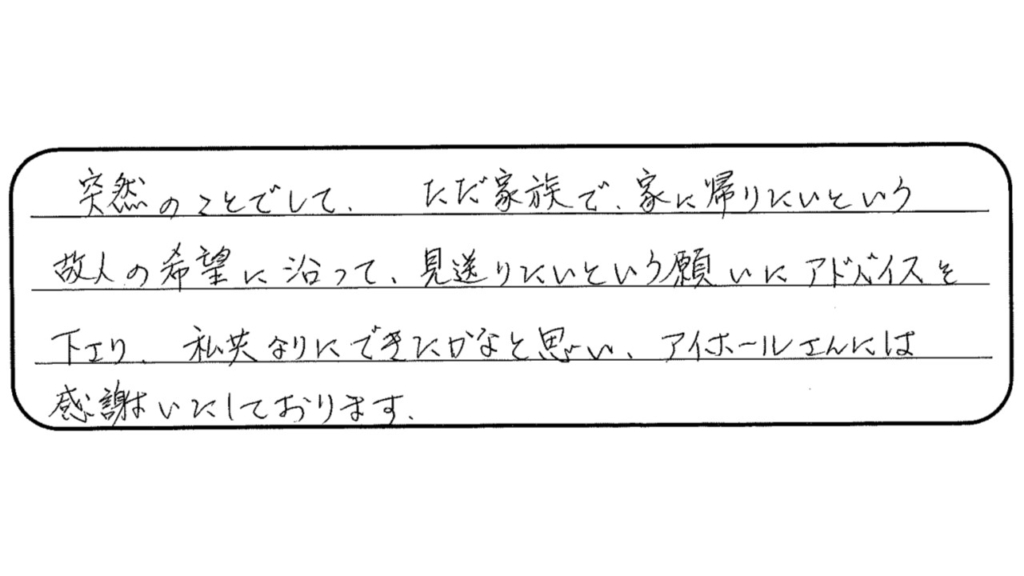 突然のことでして、ただ家族で、家に帰りたいという
故人の希望に沿って、見送りたいという願いにアドバイスを
下さり、私共なりにできたかなと思い、アイホールさんには
感謝いたしております。